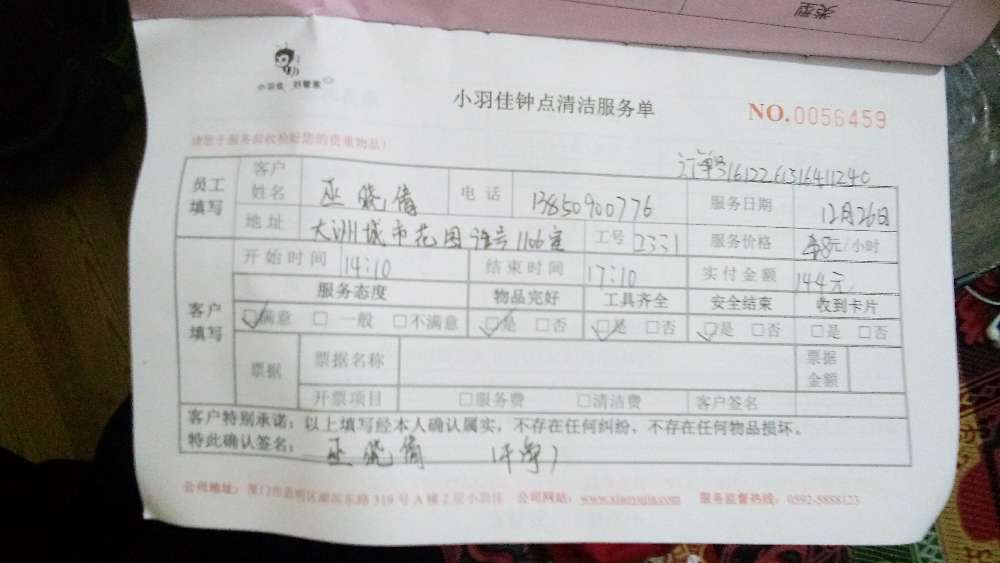 类型
小羽佳 好管家
小羽佳钟点清洁服务单
NO.0056459
请您于服务前收检好您的贵重物品!
订单号161226131641240
员工填写 客户姓名 巫晓倩 电话 13850900776 服务日期 12月26日
地址 大洲城市花园 号1106室 工号 2331 服务价格 48元/小时
客户填写 开始时间 14:10 结束时间 17:10 实付金额 144元
服务态度 物品完好 工具齐全 安全结束 收到卡片
☑满意 □一般 □不满意 ☑是 □否 ☑是 □否 ☑是 □否 □是 □否
票据 票据名称 票据金额
开票项目 □服务费 □清洁费 客户签名
客户特别承诺:以上填写经本人确认属实,不存在任何纠纷,不存在任何物品损坏。
特此确认签名: 巫晓倩 (干净)
公司地址:厦门市思明区湖滨东路319号A栋2层小羽佳 公司网站:www.xiaoyujia.com 服务监督热线:0592-5888123